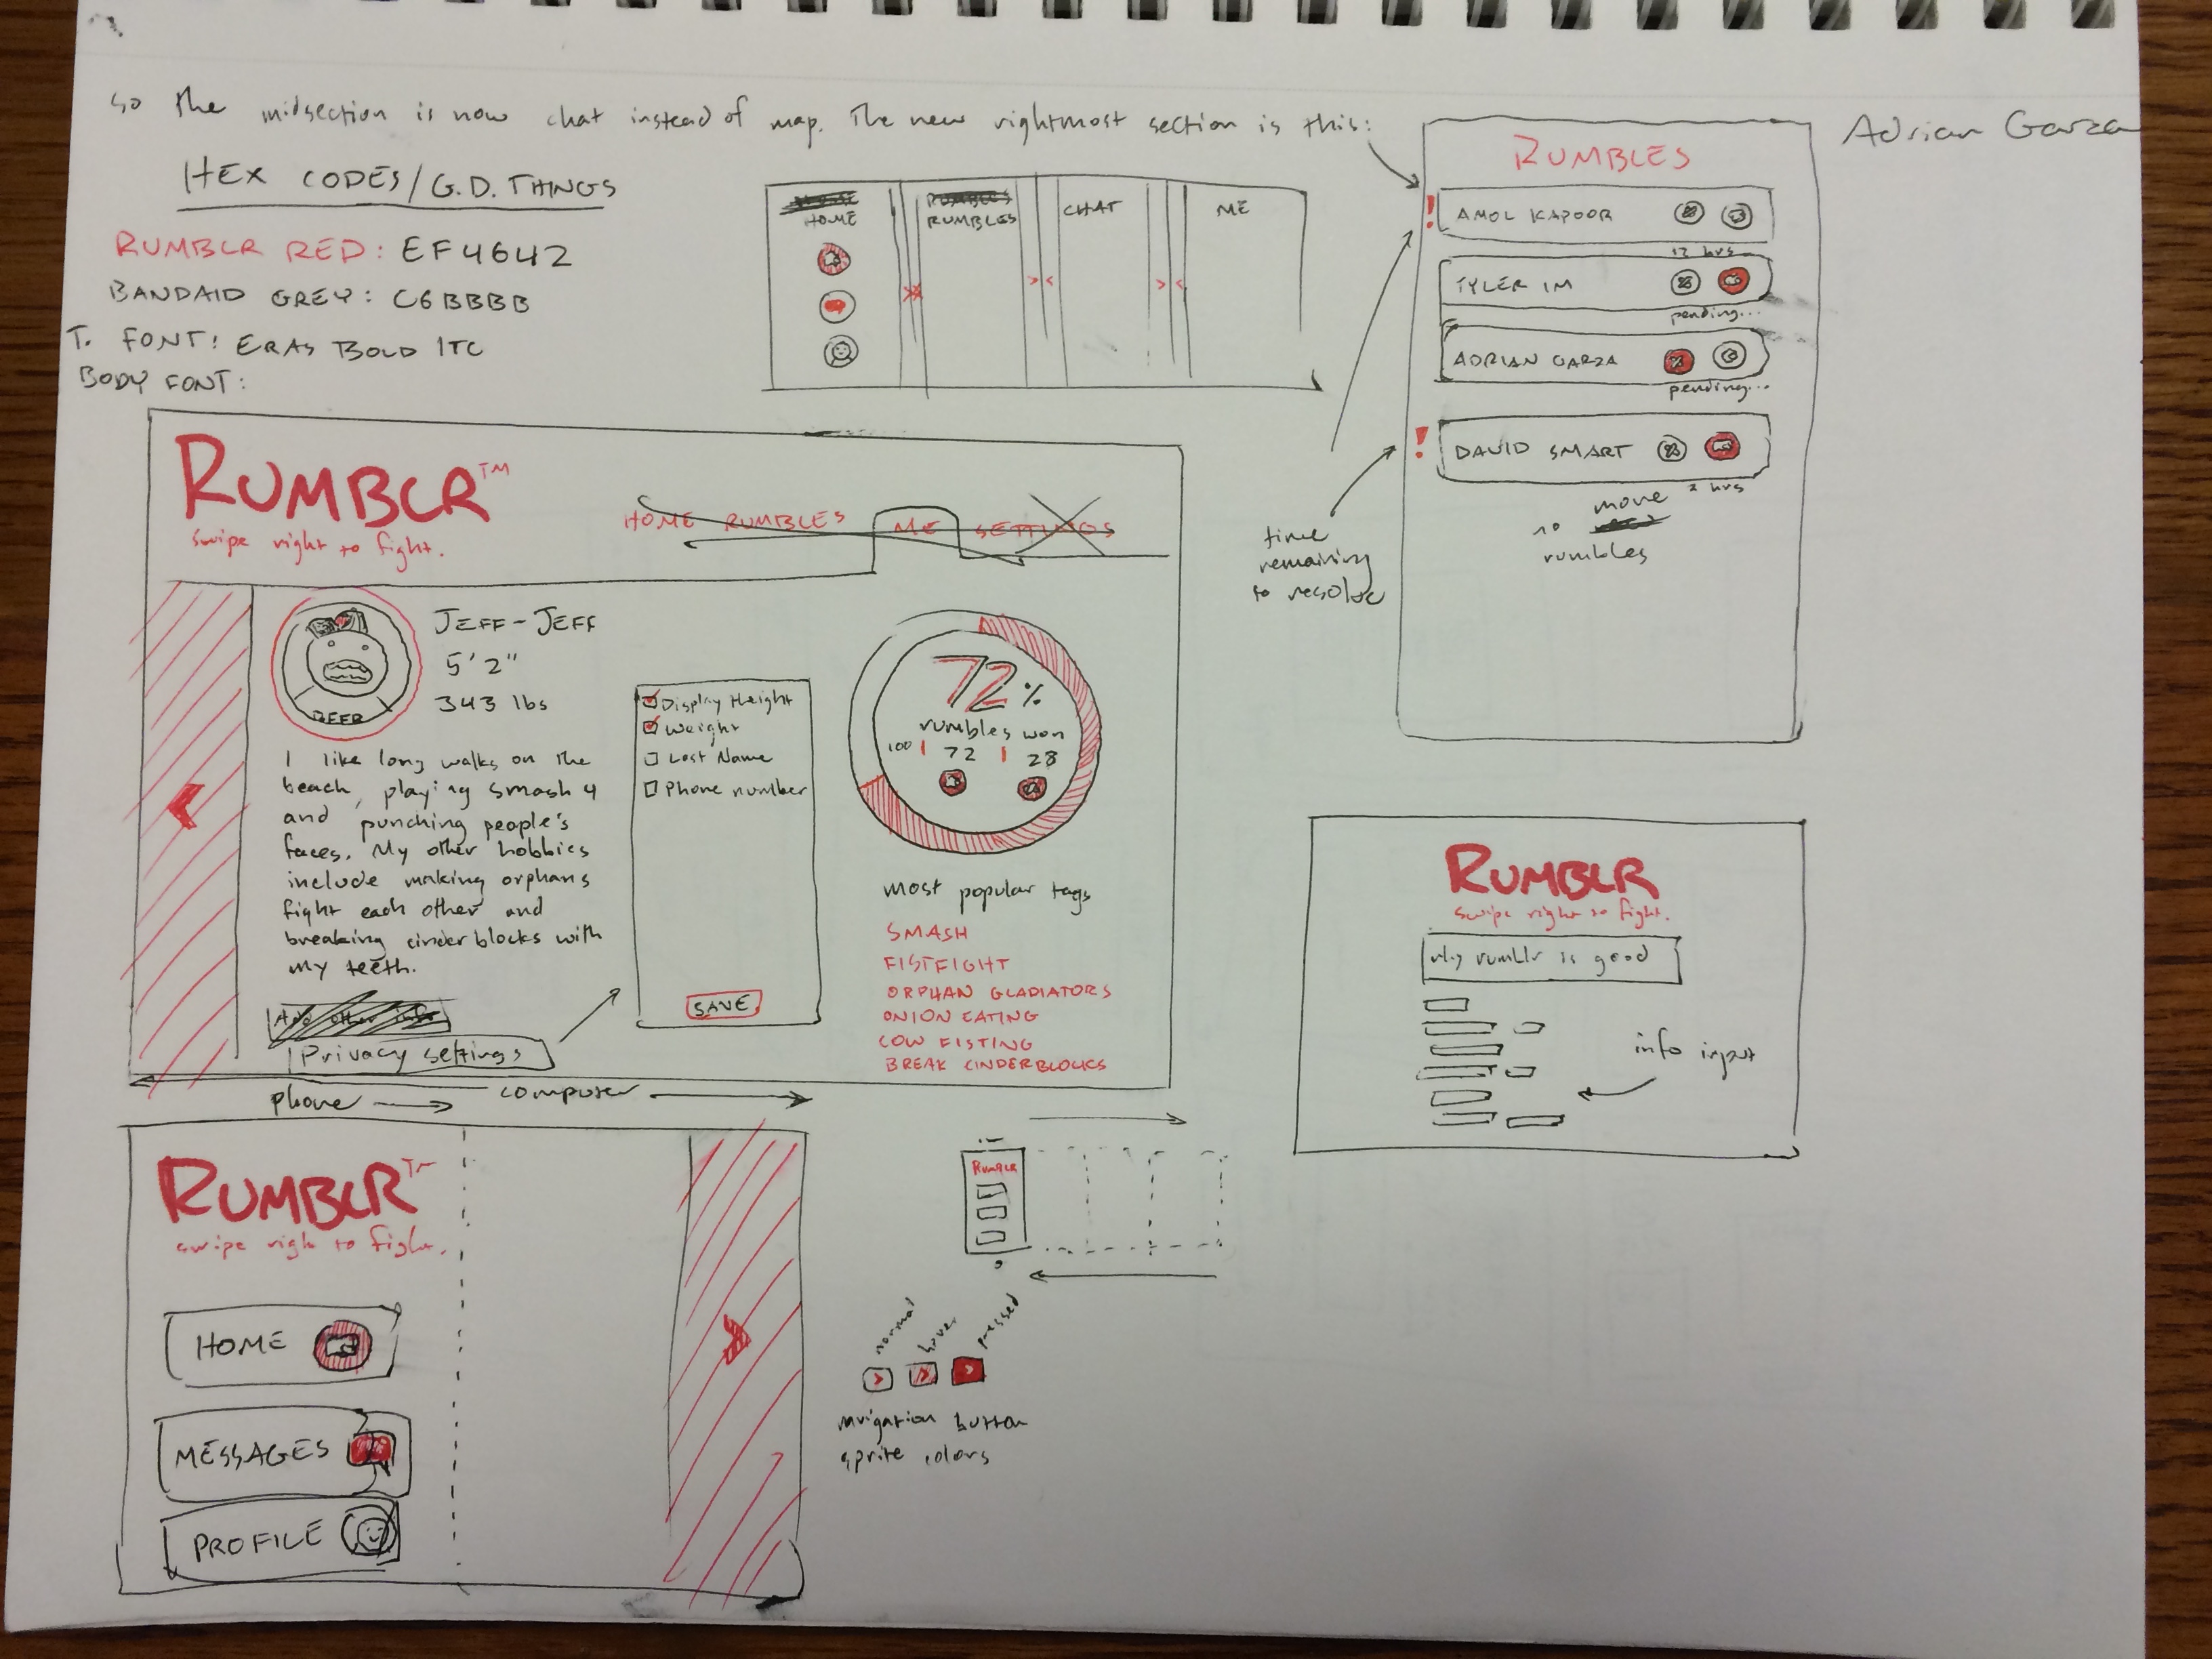 so the midsection is now chat instead of map. The new rightmost section is this:
Adrian Garza
HEX CODES/G.D. THINGS
RUMBLR RED: EF4642
BANDAID GREY: C6BBBB
T. FONT: ERAS BOLD ITC
BODY FONT:
HOME
RUMBLES
CHAT
ME
RUMBLES
! AMOL KAPOOR
12 hrs
TYLER IM
pending...
ADRIAN GARZA
pending...
! DAVID SMART
2 hrs
no move
rumbles
time
remaining
to resolve
RUMBLR™
swipe right to fight.
HOME RUMBLES ME SETTINGS
JEFF-JEFF
5'2"
343 lbs
BEER
I like long walks on the
beach, playing smash 4
and punching people's
faces. My other hobbies
include making orphans
fight each other and
breaking cinderblocks with
my teeth.
Add other info
Privacy settings
Display Height
Weight
Last Name
Phone number
SAVE
72%
rumbles won
100 | 72 | 28
most popular tags
SMASH
FISTFIGHT
ORPHAN GLADIATORS
ONION EATING
COW FISTING
BREAK CINDERBLOCKS
RUMBLR
swipe right to fight.
why rumblr is good
info input
phone
computer
RUMBLR™
swipe righ to fight.
HOME
MESSAGES
PROFILE
RUMBLR
normal
hover
pressed
nvigation button
sprite colors